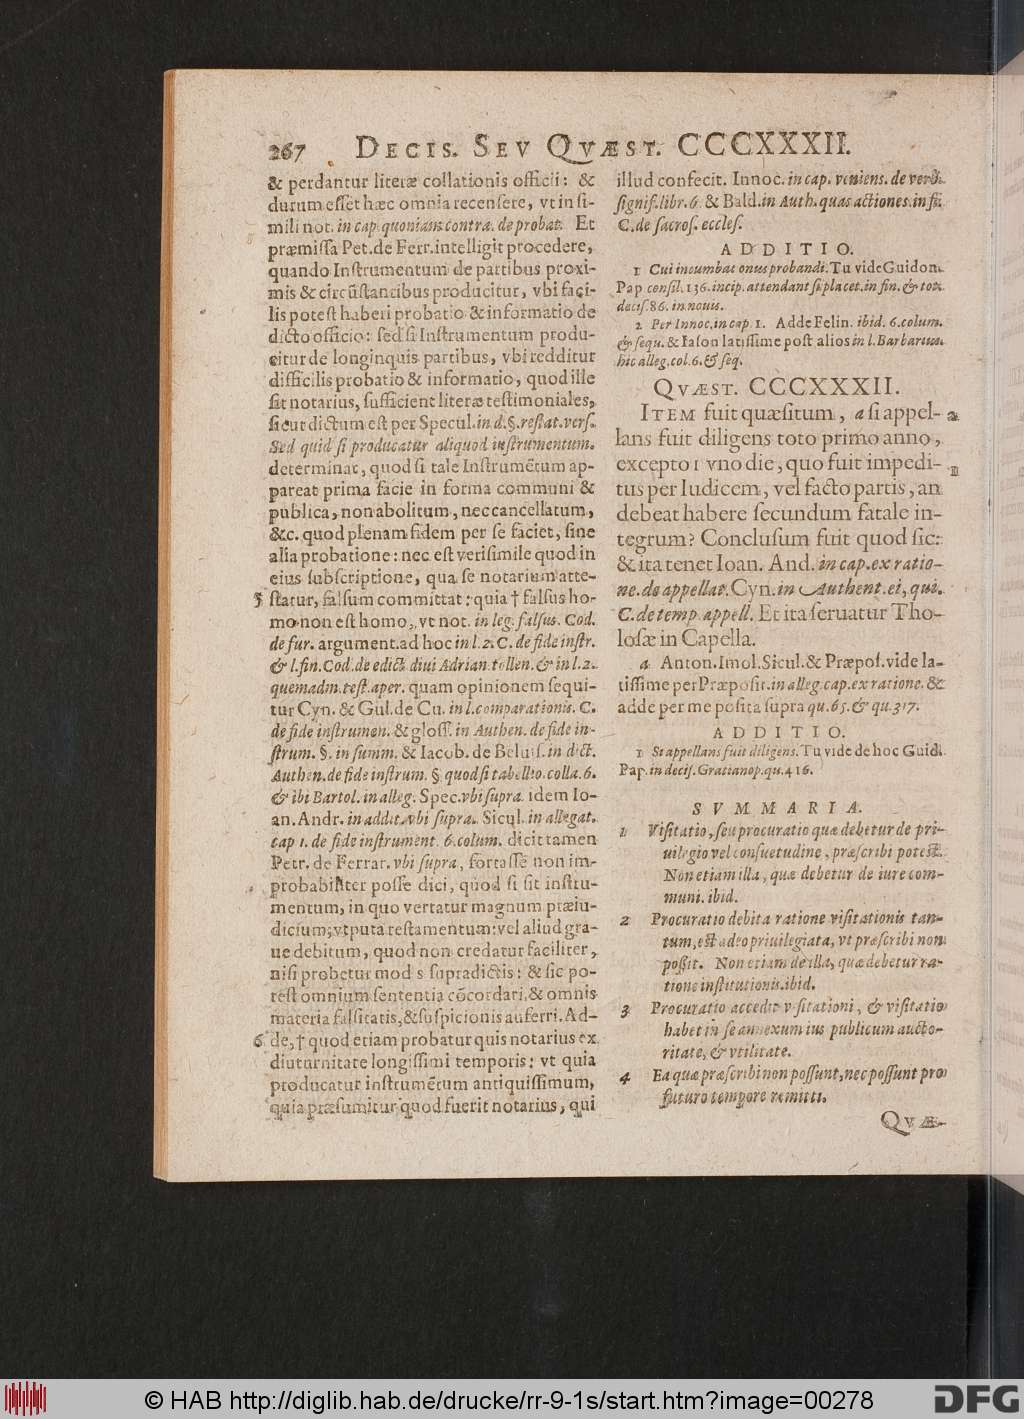 267 DECIS. SEV QVÆST. CCCXXXII.
& perdantur literæ collationis officii: &
durum esset hæc omnia recensere, vt in si-
mili not. in cap. quoniam contra. de probat. Et
præmissa Pet. de Ferr. intelligit procedere,
quando Instrumentum de partibus proxi-
mis & circũstantibus producitur, vbi faci-
lis potest haberi probatio & informatio de
dicto officio: sed si Instrumentum produ-
citur de longinquis partibus, vbi redditur
difficilis probatio & informatio, quod ille
sit notarius, sufficient literæ testimoniales,
sicut dictum est per Specul. in d. §. restat. vers.
Sed quid si producatur aliquod instrumentum.
determinat, quod si tale Instrumẽtum ap-
pareat prima facie in forma communi &
publica, non abolitum, nec cancellatum,
&c. quod plenam fidem per se faciet, sine
alia probatione: nec est verisimile quod in
eius subscriptione, qua se notarium atte-
5 statur, falsum committat: quia † falsus ho-
mo non est homo, vt not. in leg. falsus. Cod.
de fur. argument. ad hoc in l. 2. C. de fide instr.
& l. fin. Cod. de edict. diui Adrian. tollen. & in l. 2.
quemadm. test. aper. quam opinionem sequi-
tur Cyn. & Gul. de Cu. in l. comparationis. C.
de fide instrumen. & gloss. in Authen. de fide in-
strum. §. in summ. & Iacob. de Beluis. in dict.
Authen. de fide instrum. §. quod si tabellio. colla. 6.
& ibi Bartol. in alleg. Spec. vbi supra. idem Io-
an. Andr. in addit. vbi supra. Sicul. in allegat.
cap 1. de fide instrument. 6. colum. dicit tamen
Petr. de Ferrar. vbi supra, fortassè non im-
probabiliter posse dici, quod si sit instru-
mentum, in quo vertatur magnum præiu-
dicium; vtputa testamentum: vel aliud gra-
ue debitum, quod non credatur faciliter,
nisi probetur mod s supradictis: & sic po-
test omnium sententia cõcordari, & omnis
materia falsitatis, & suspicionis auferri. Ad-
6 de, † quod etiam probatur quis notarius ex
diuturnitate longissimi temporis: vt quia
producatur instrumẽtum antiquissimum,
quia præsumitur quod fuerit notarius, qui
illud confecit. Innoc. in cap. veniens. de verb.
signif. libr. 6. & Bald. in Auth. quas actiones. in fi.
C. de sacros. eccles.
ADDITIO.
1 Cui incumbat onus probandi. Tu vide Guidon.
Pap consil. 136. incip. attendant si placet. in fin. & tot.
decis. 86. in nouis.
2 Per Innoc. in cap. 1. Adde Felin. ibid. 6. colum.
& sequ. & Iason latissime post alios in l. Barbarius.
hic alleg. col. 6. & seq.
QVÆST. CCCXXXII.
ITEM fuit quæsitum, a si appel- a
lans fuit diligens toto primo anno,
excepto 1 vno die, quo fuit impedi- 1
tus per Iudicem, vel facto partis, an
debeat habere secundum fatale in-
tegrum? Conclusum fuit quod sic:
& ita tenet Ioan. And. in cap. ex ratio-
ne. de appellat. Cyn. in Authent. ei, qui.
C. de temp. appell. Et ita seruatur Tho-
losæ in Capella.
a Anton. Imol. Sicul. & Præpos. vide la-
tissime per Præposit. in alleg. cap. ex ratione. &
adde per me posita supra qu. 65. & qu. 317.
ADDITIO.
1 Si appellans fuit diligens. Tu vide de hoc Guid.
Pap. in decis. Gratianop. qu. 416.
SVMMARIA.
1 Visitatio, seu procuratio quæ debetur de pri-
uilegio vel consuetudine, præscribi potest.
Non etiam illa, quæ debetur de iure com-
muni. ibid.
2 Procuratio debita ratione visitationis tan-
tum, est adeo priuilegiata, vt præscribi non
possit. Non etiam de illa, quæ debetur ra-
tione institutionis. ibid.
3 Procuratio accedit visitationi, & visitatio
habet in se annexum ius publicum aucto-
ritate, & vtilitate.
4 Ea quæ præscribi non possunt, nec possunt pro
futuro tempore remitti.
QVÆ-
© HAB http://diglib.hab.de/drucke/rr-9-1s/start.htm?image=00278
DFG